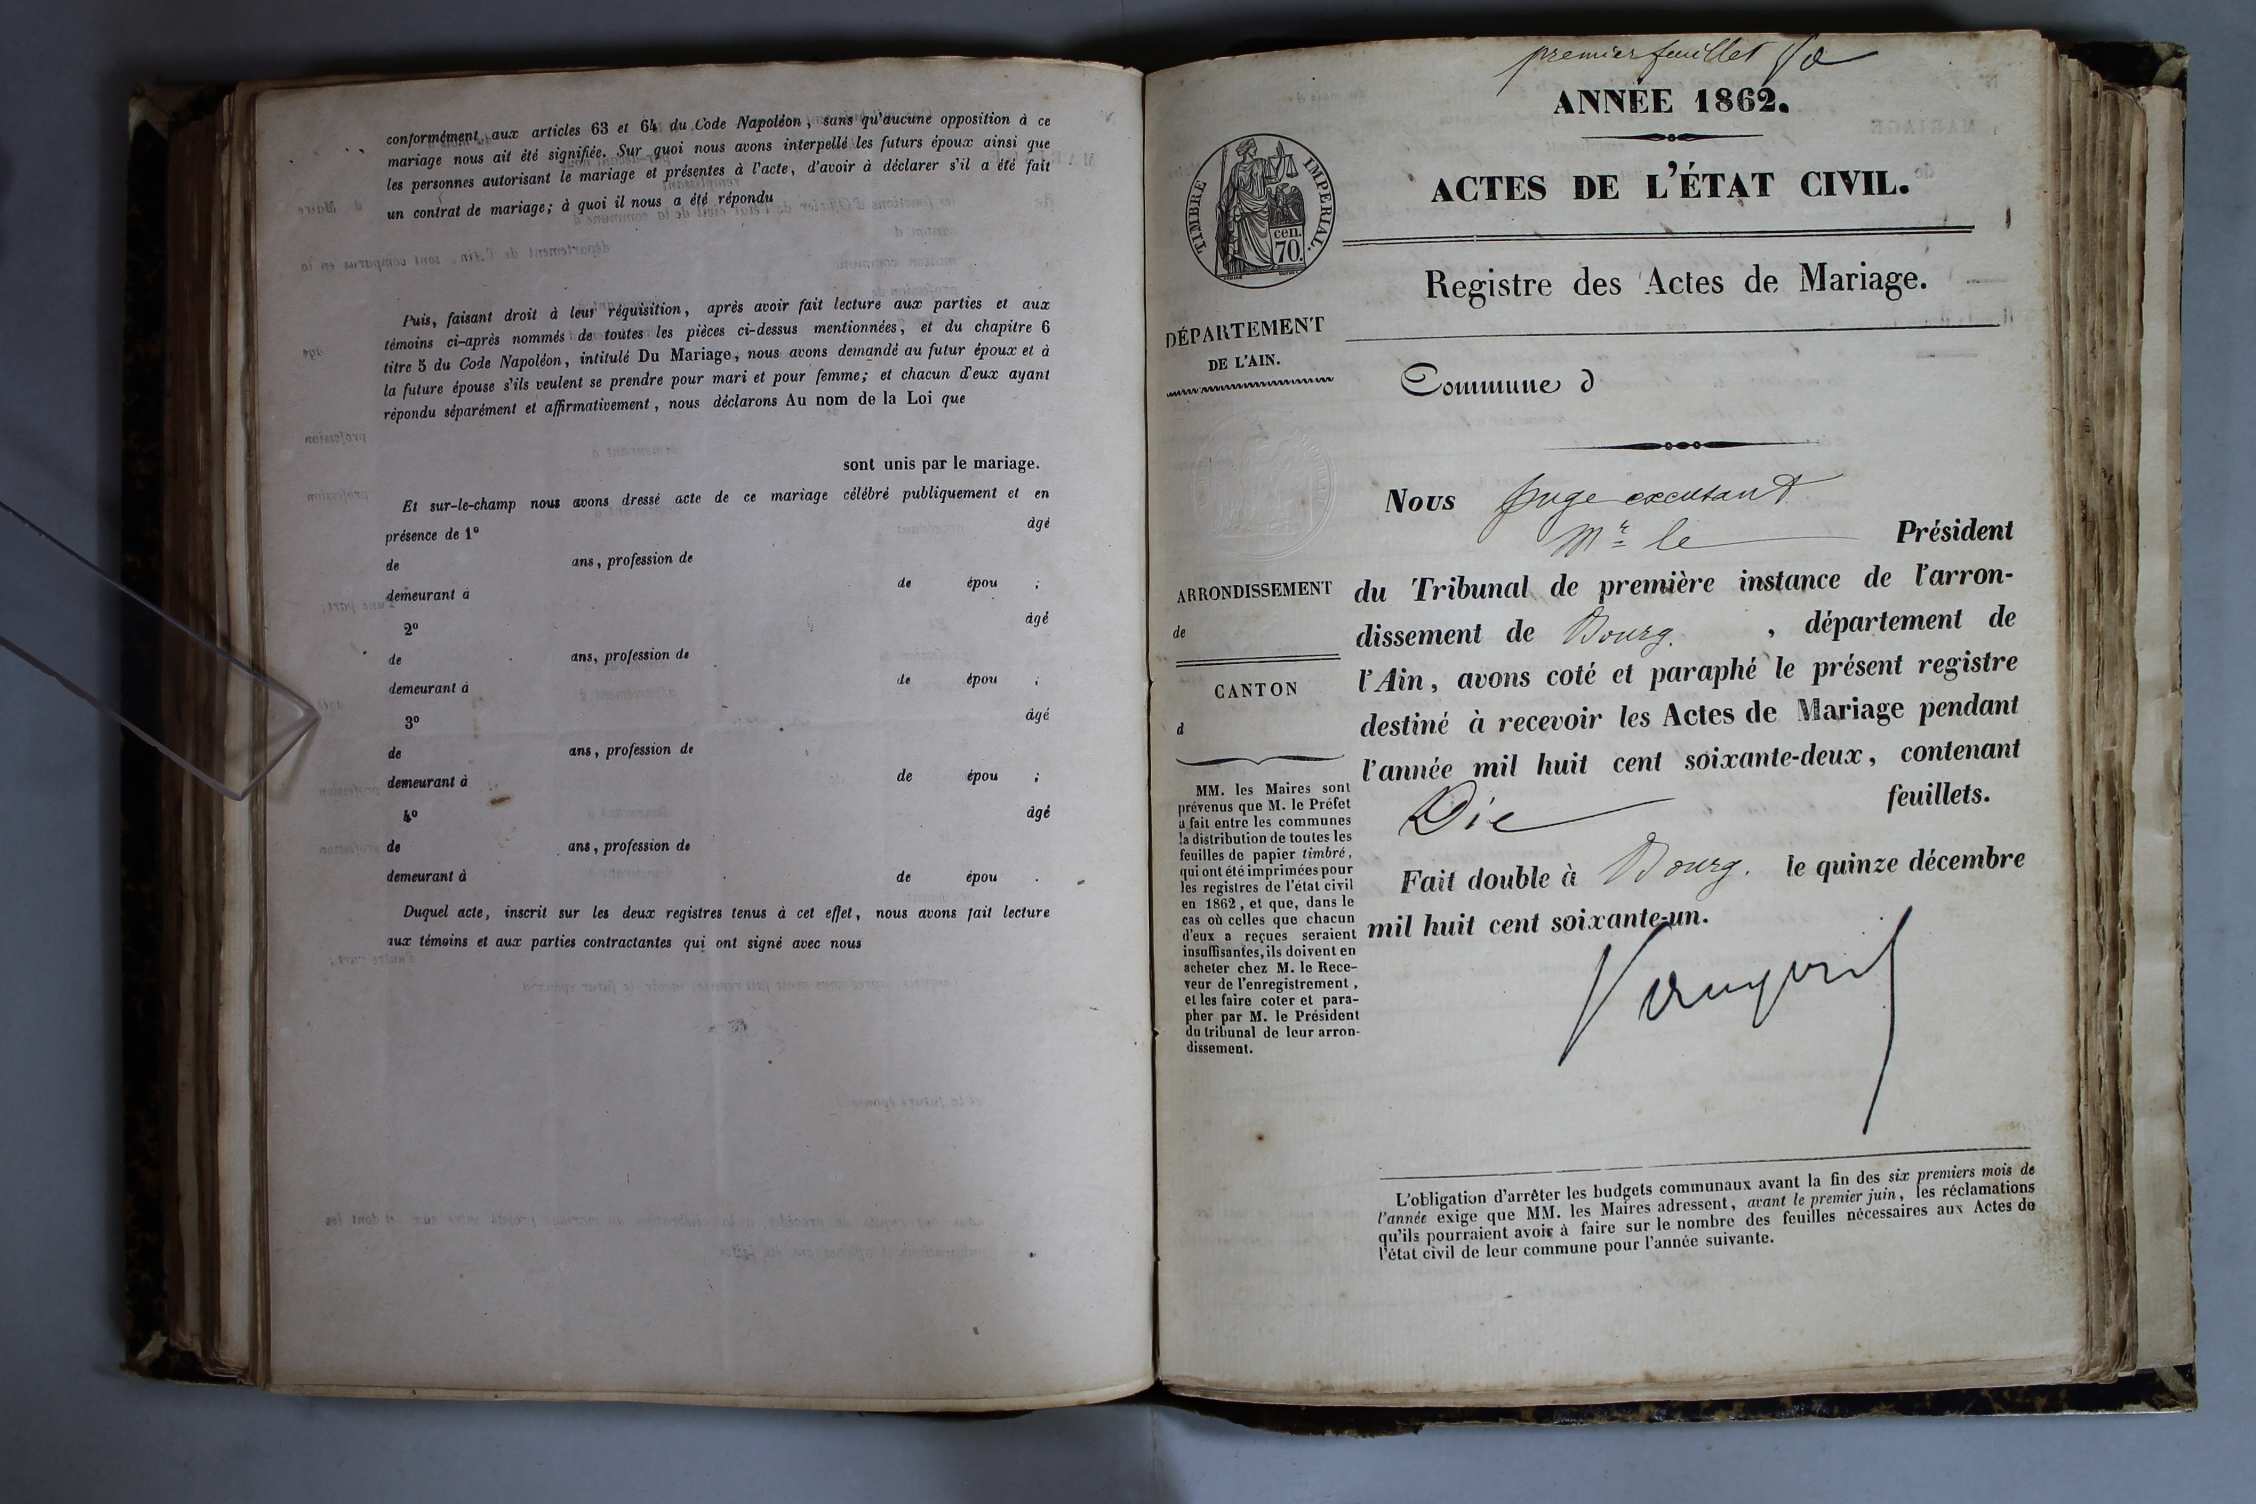 conformément aux articles 63 et 64 du Code Napoléon, sans qu'aucune opposition à ce
mariage nous ait été signifiée. Sur quoi nous avons interpellé les futurs époux ainsi que
les personnes autorisant le mariage et présentes à l'acte, d'avoir à déclarer s'il a été fait
un contrat de mariage; à quoi il nous a été répondu
Puis, faisant droit à leur réquisition, après avoir fait lecture aux parties et aux
témoins ci-après nommés de toutes les pièces ci-dessus mentionnées, et du chapitre 6
titre 5 du Code Napoléon, intitulé Du Mariage, nous avons demandé au futur époux et à
la future épouse s'ils veulent se prendre pour mari et pour femme; et chacun d'eux ayant
répondu séparément et affirmativement, nous déclarons Au nom de la Loi que
sont unis par le mariage.
Et sur-le-champ nous avons dressé acte de ce mariage célébré publiquement et en
présence de 1º âgé
de ans, profession de
demeurant à de épou ;
2º âgé
de ans, profession de
demeurant à de épou ;
3º âgé
de ans, profession de
demeurant à de épou ;
4º âgé
de ans, profession de
demeurant à de épou .
Duquel acte, inscrit sur les deux registres tenus à cet effet, nous avons fait lecture
aux témoins et aux parties contractantes qui ont signé avec nous
premier feuillet
ANNÉE 1862.
ACTES DE L'ÉTAT CIVIL.
TIMBRE IMPERIAL.
cen.
70.
Registre des Actes de Mariage.
DÉPARTEMENT
DE L'AIN.
Commune d
Nous Juge excusant
Mr le Président
du Tribunal de première instance de l'arron-
dissement de Bourg. , département de
l'Ain, avons coté et paraphé le présent registre
destiné à recevoir les Actes de Mariage pendant
l'année mil huit cent soixante-deux, contenant
Dix feuillets.
Fait double à Bourg. le quinze décembre
mil huit cent soixante-un.
ARRONDISSEMENT
de
CANTON
d
MM. les Maires sont
prévenus que M. le Préfet
a fait entre les communes
la distribution de toutes les
feuilles de papier timbré,
qui ont été imprimées pour
les registres de l'état civil
en 1862, et que, dans le
cas où celles que chacun
d'eux a reçues seraient
insuffisantes, ils doivent en
acheter chez M. le Rece-
veur de l'enregistrement,
et les faire coter et para-
pher par M. le Président
du tribunal de leur arron-
dissement.
L'obligation d'arrêter les budgets communaux avant la fin des six premiers mois de
l'année exige que MM. les Maires adressent, avant le premier juin, les réclamations
qu'ils pourraient avoir à faire sur le nombre des feuilles nécessaires aux Actes de
l'état civil de leur commune pour l'année suivante.